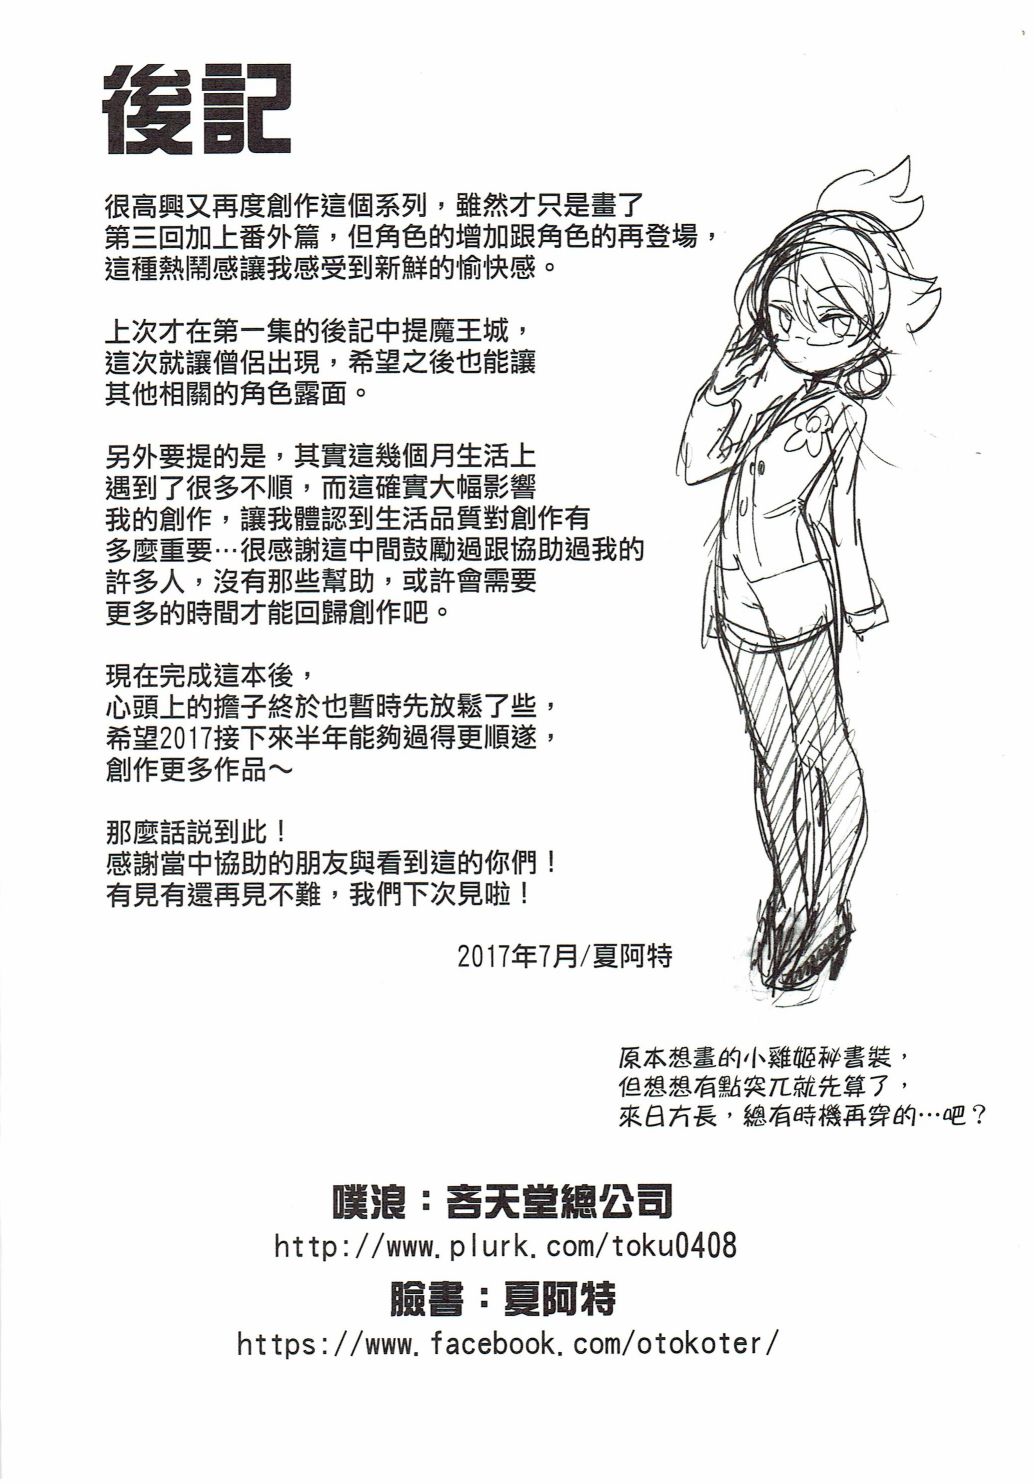 後記
很高興又再度創作這個系列，雖然才只是畫了
第三回加上番外篇，但角色的增加跟角色的再登場，
這種熱鬧感讓我感受到新鮮的愉快感。
上次才在第一集的後記中提魔王城，
這次就讓僧侶出現，希望之後也能讓
其他相關的角色露面。
另外要提的是，其實這幾個月生活上
遇到了很多不順，而這確實大幅影響
我的創作，讓我體認到生活品質對創作有
多麼重要…很感謝這中間鼓勵過跟協助過我的
許多人，沒有那些幫助，或許會需要
更多的時間才能回歸創作吧。
現在完成這本後，
心頭上的擔子終於也暫時先放鬆了些，
希望2017接下來半年能夠過得更順遂，
創作更多作品～
那麼話說到此！
感謝當中協助的朋友與看到這的你們！
有見有還再見不難，我們下次見啦！
2017年7月/夏阿特
原本想畫的小雞姬秘書裝，
但想想有點突兀就先算了，
來日方長，總有時機再穿的…吧？
噗浪：吝天堂總公司
http://www.plurk.com/toku0408
臉書：夏阿特
https://www.facebook.com/otokoter/